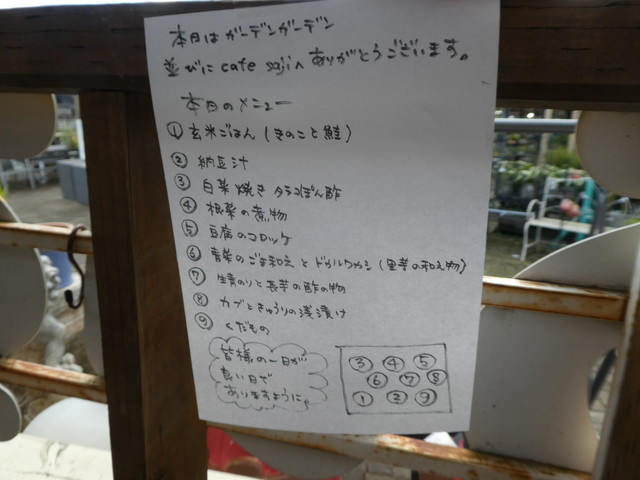 本日はガーデンガーデン
並びに cafe sajiへありがとうございます。
本日のメニュー
① 玄米ごはん (きのこと鮭)
② 納豆汁
③ 白菜焼き タラコぽん酢
④ 根菜の煮物
⑤ 豆腐のコロッケ
⑥ 青菜のごま和えと ドガルワカシ (里芋の和え物)
⑦ 生青のりと長芋の酢の物
⑧ カブときゅうりの浅漬け
⑨ くだもの
皆様の一日が
良い日で
ありますように。
③ ④ ⑤
⑥ ⑦ ⑧
① ② ⑨